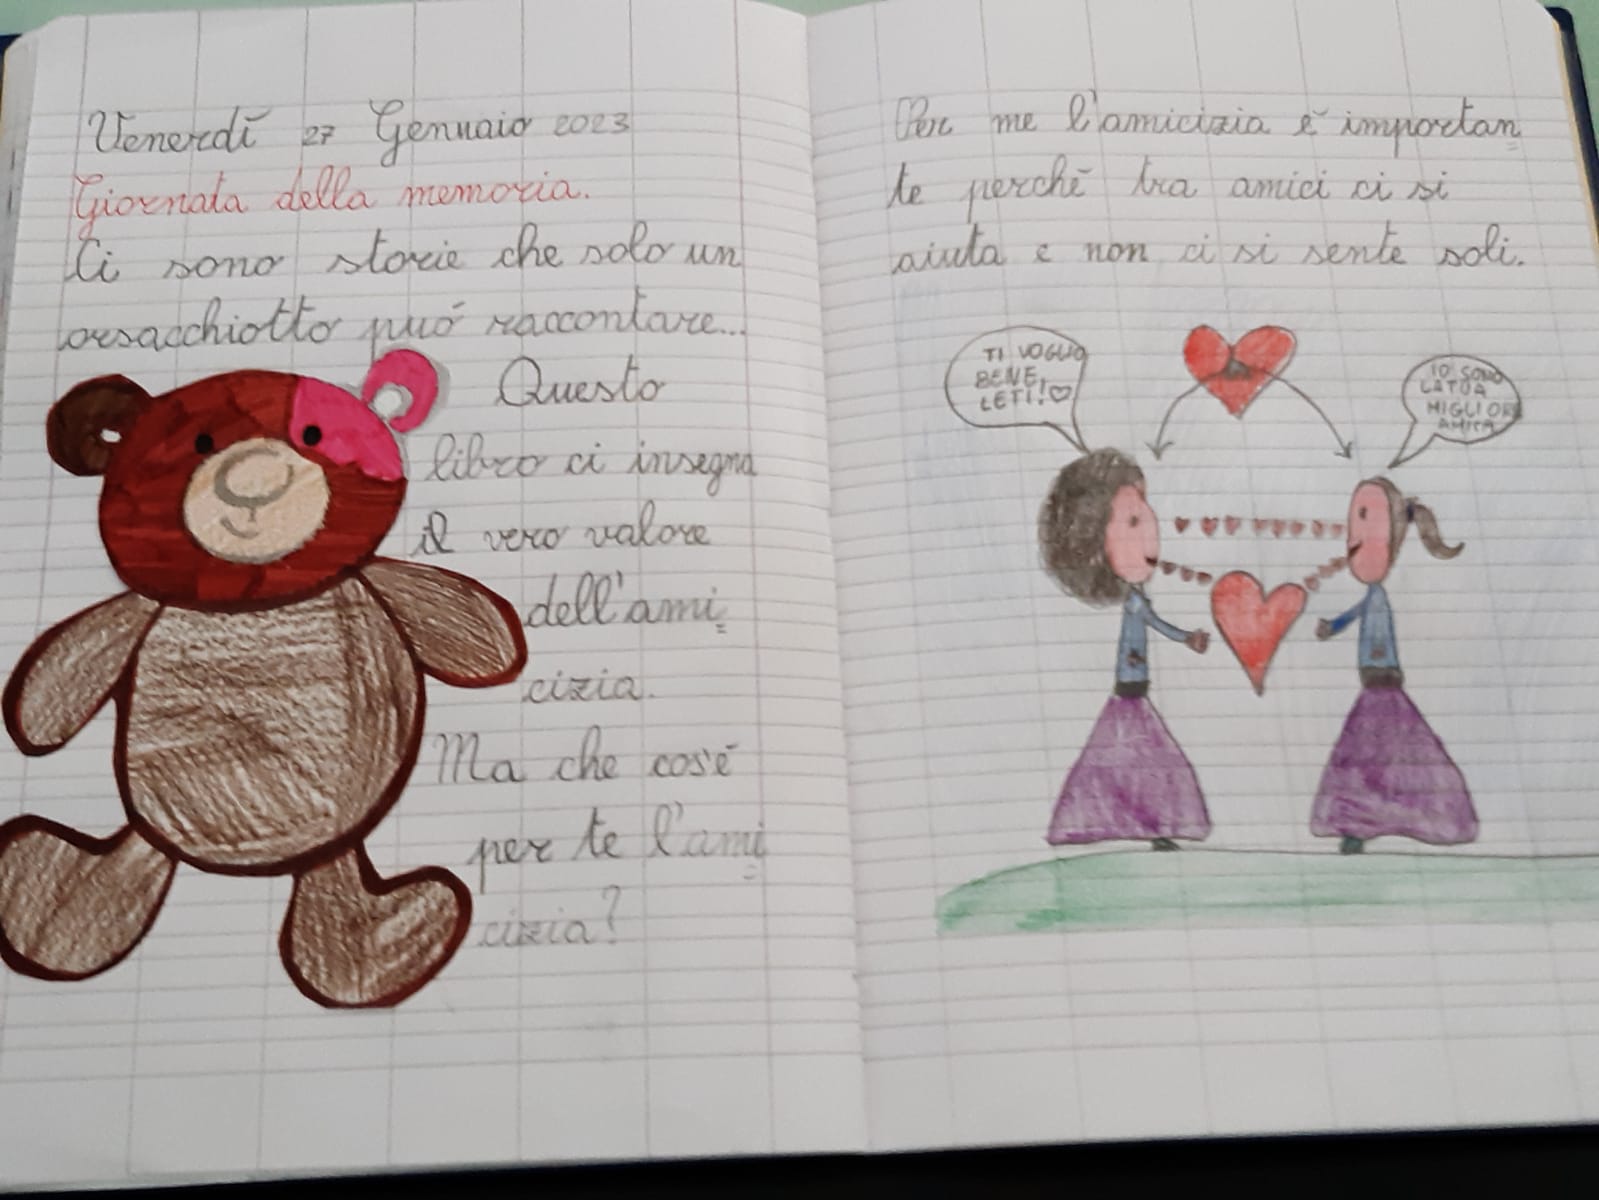 Venerdì 27 Gennaio 2023
Giornata della memoria.
Ci sono storie che solo un
orsacchiotto può raccontare...
Questo
libro ci insegna
il vero valore
dell'ami
cizia.
Ma che cos'è
per te l'ami
cizia?
Per me l'amicizia è importan
te perchè tra amici ci si
aiuta e non ci si sente soli.
TI VOGLIO
BENE,
LETI!♡
IO SONO
LA TUA
MIGLIORE
AMICA